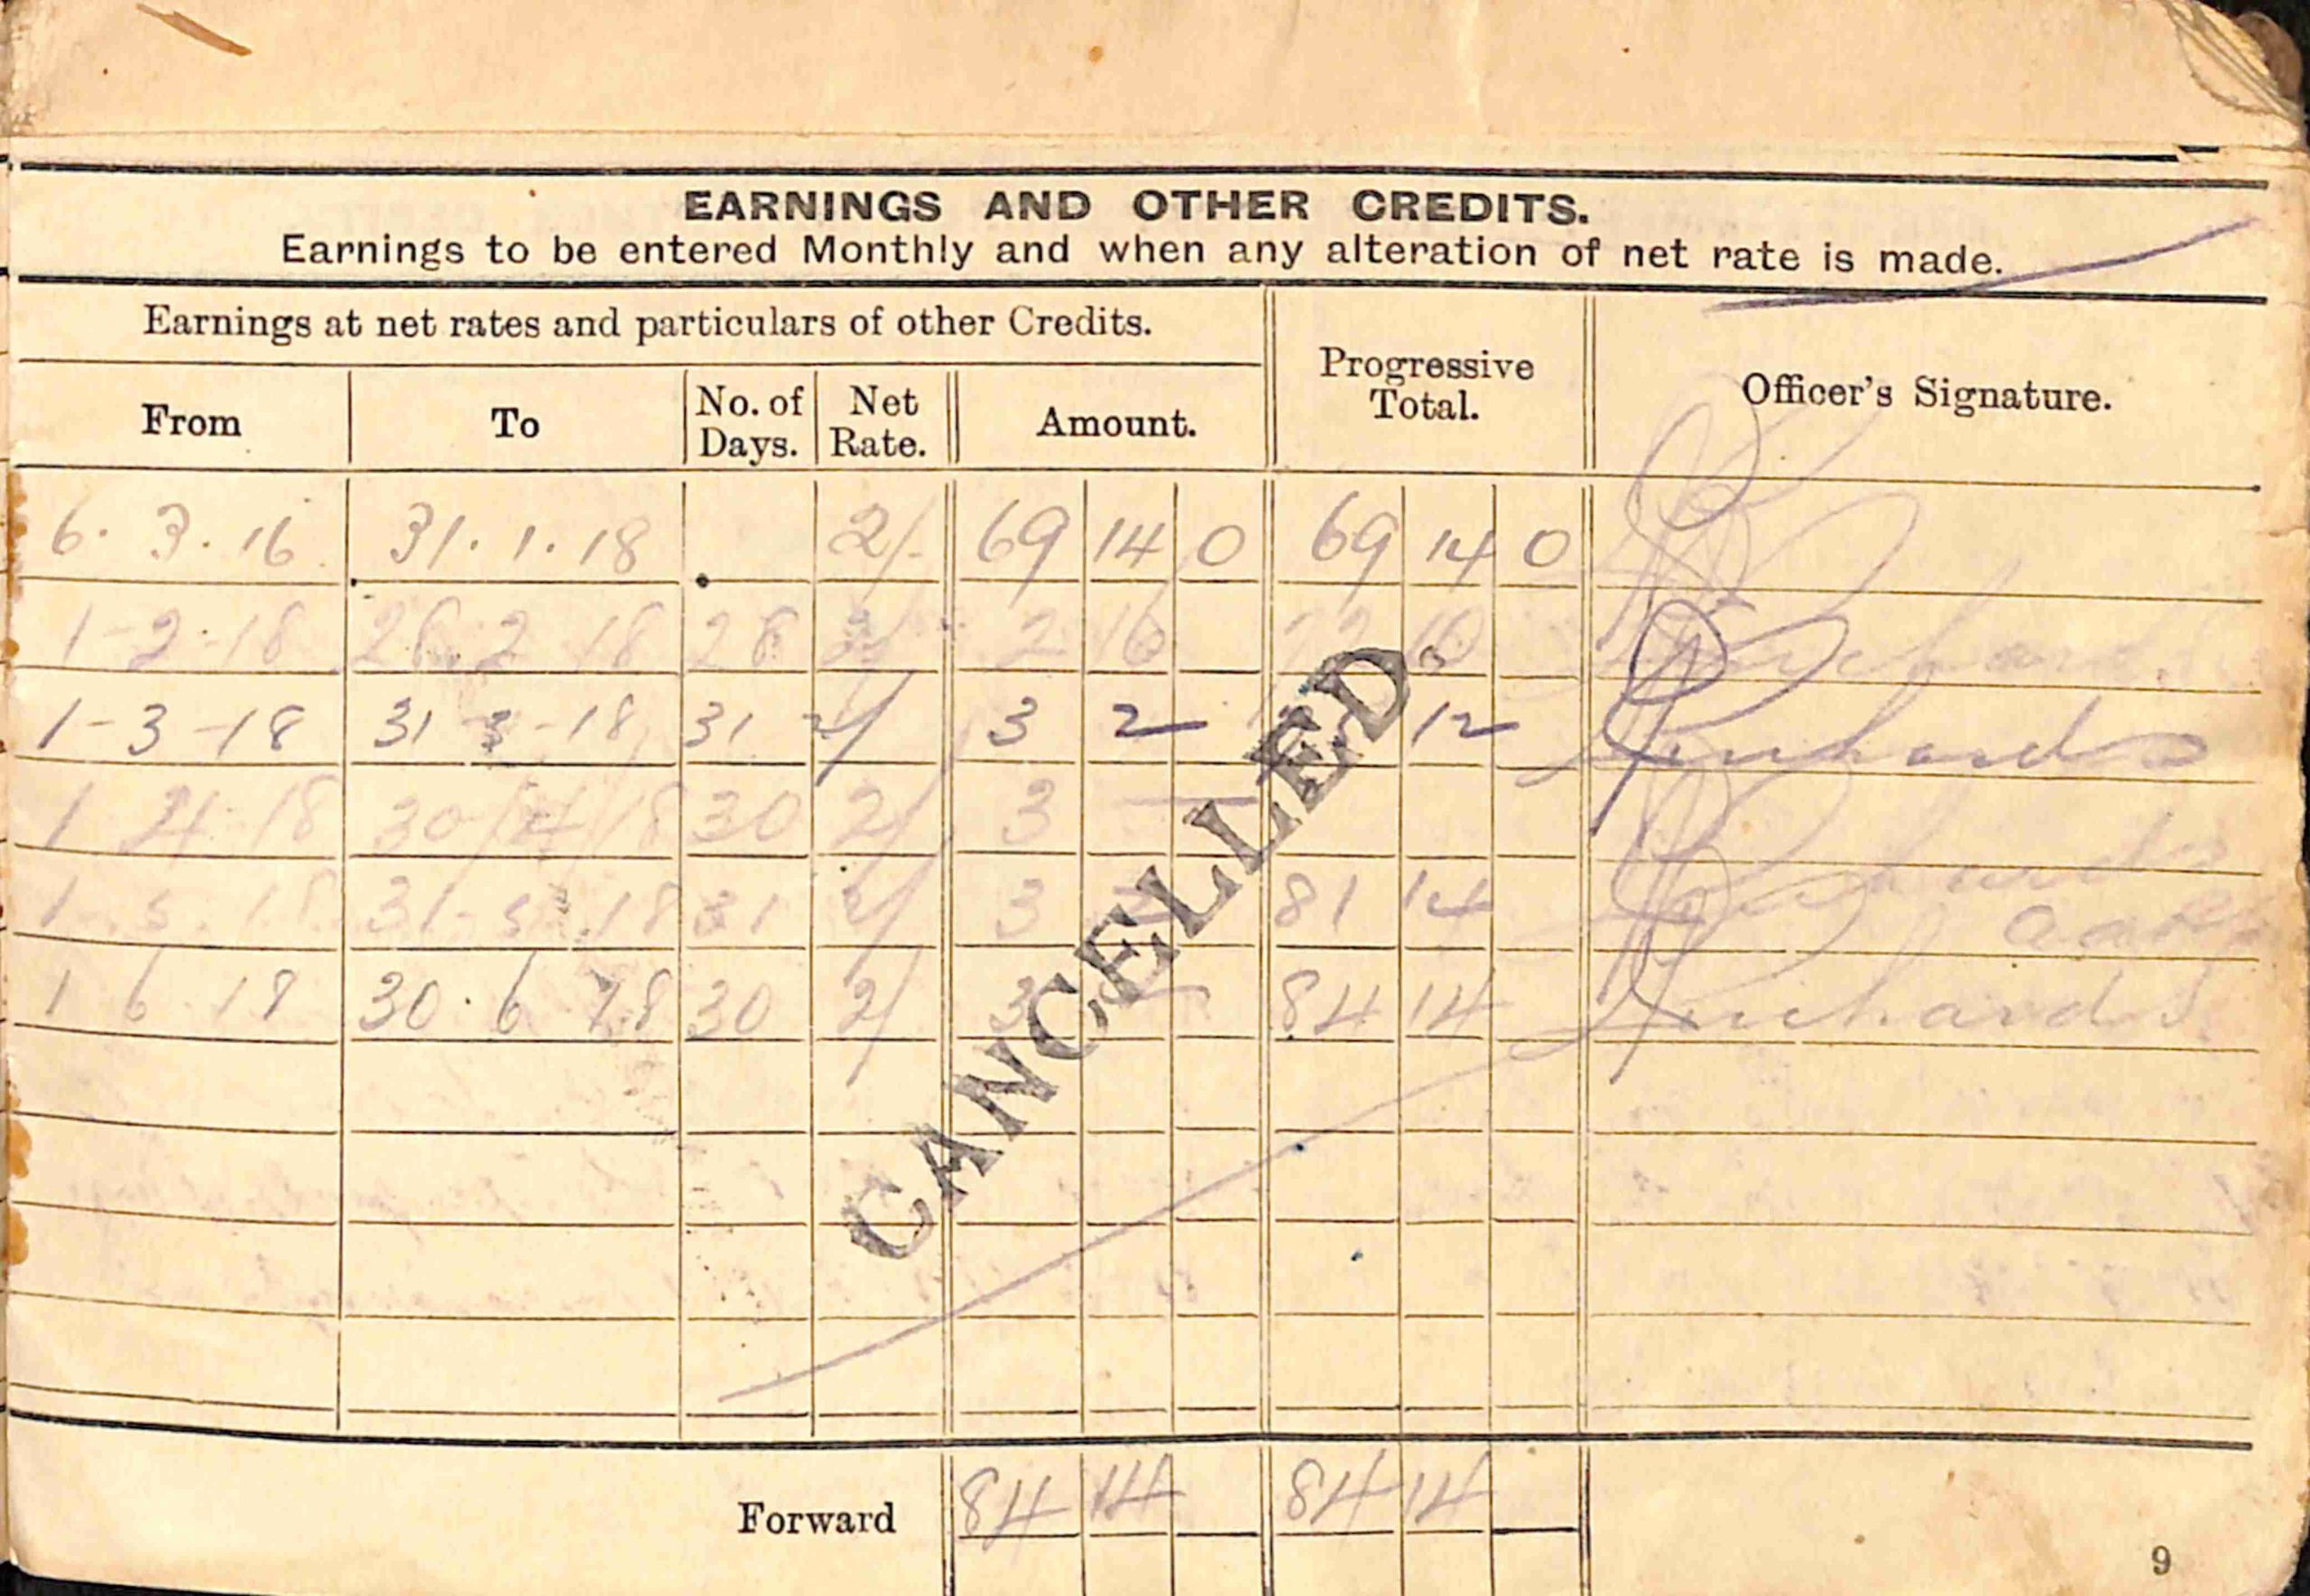 EARNINGS AND OTHER CREDITS.
Earnings to be entered Monthly and when any alteration of net rate is made.
Earnings at net rates and particulars of other Credits.
Progressive Total.
Officer's Signature.
From To No. of Days. Net Rate. Amount.
6.3.16 31.1.18 2/- 69 14 0 69 14 0
1-2-18 28.2 18 28 2/ 2 16 72 10 Richards
1-3-18 31-3-18 31 2/ 3 2 12 Richards
1 4 18 30/4/18 30 2/ 3 — Richards
1.5.18 31-5-18 31 2/ 3 2 81 14
1 6 18 30.6 18 30 2/ 3 — 84 14 Richards
CANCELLED.
Forward 84 14 84 14
9